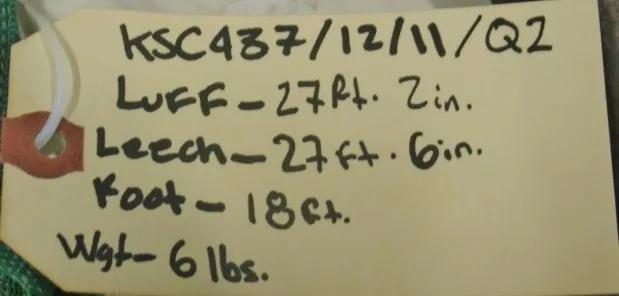 KSC437/12/11/Q2
LUFF - 27ft. 2in.
Leech - 27ft. 6in.
Foot - 18ft.
Wgt - 6 lbs.